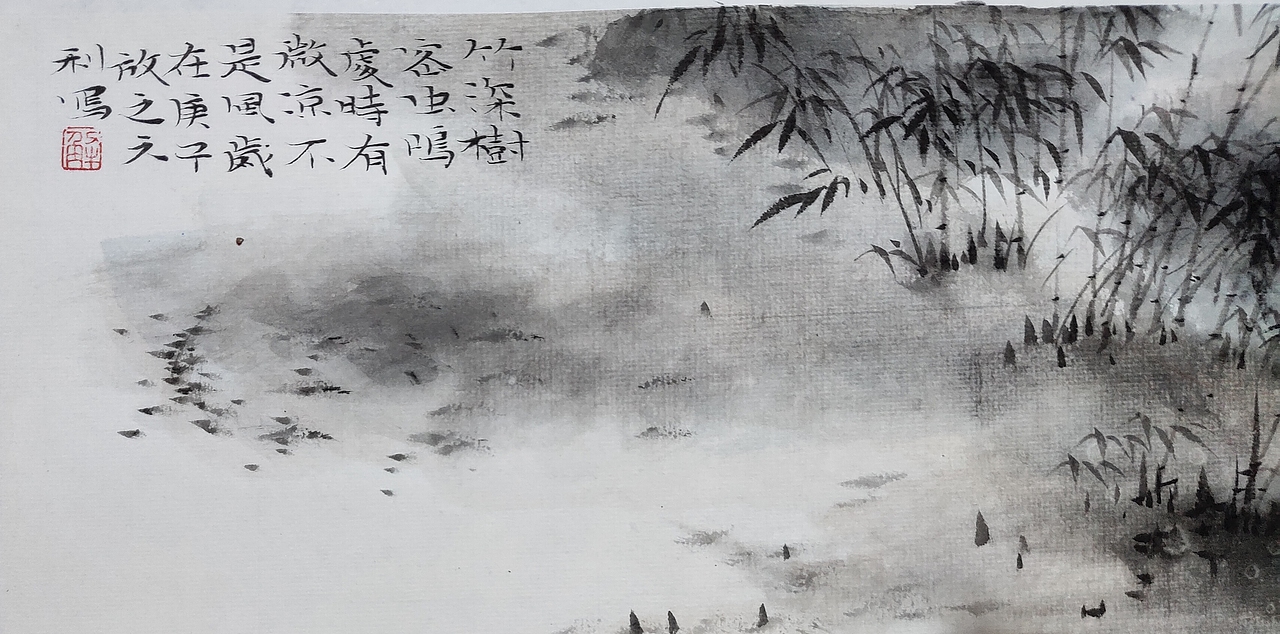 竹深樹
密虫鳴
處時有
微涼不
是風歲
在庚子
放之天
利寫